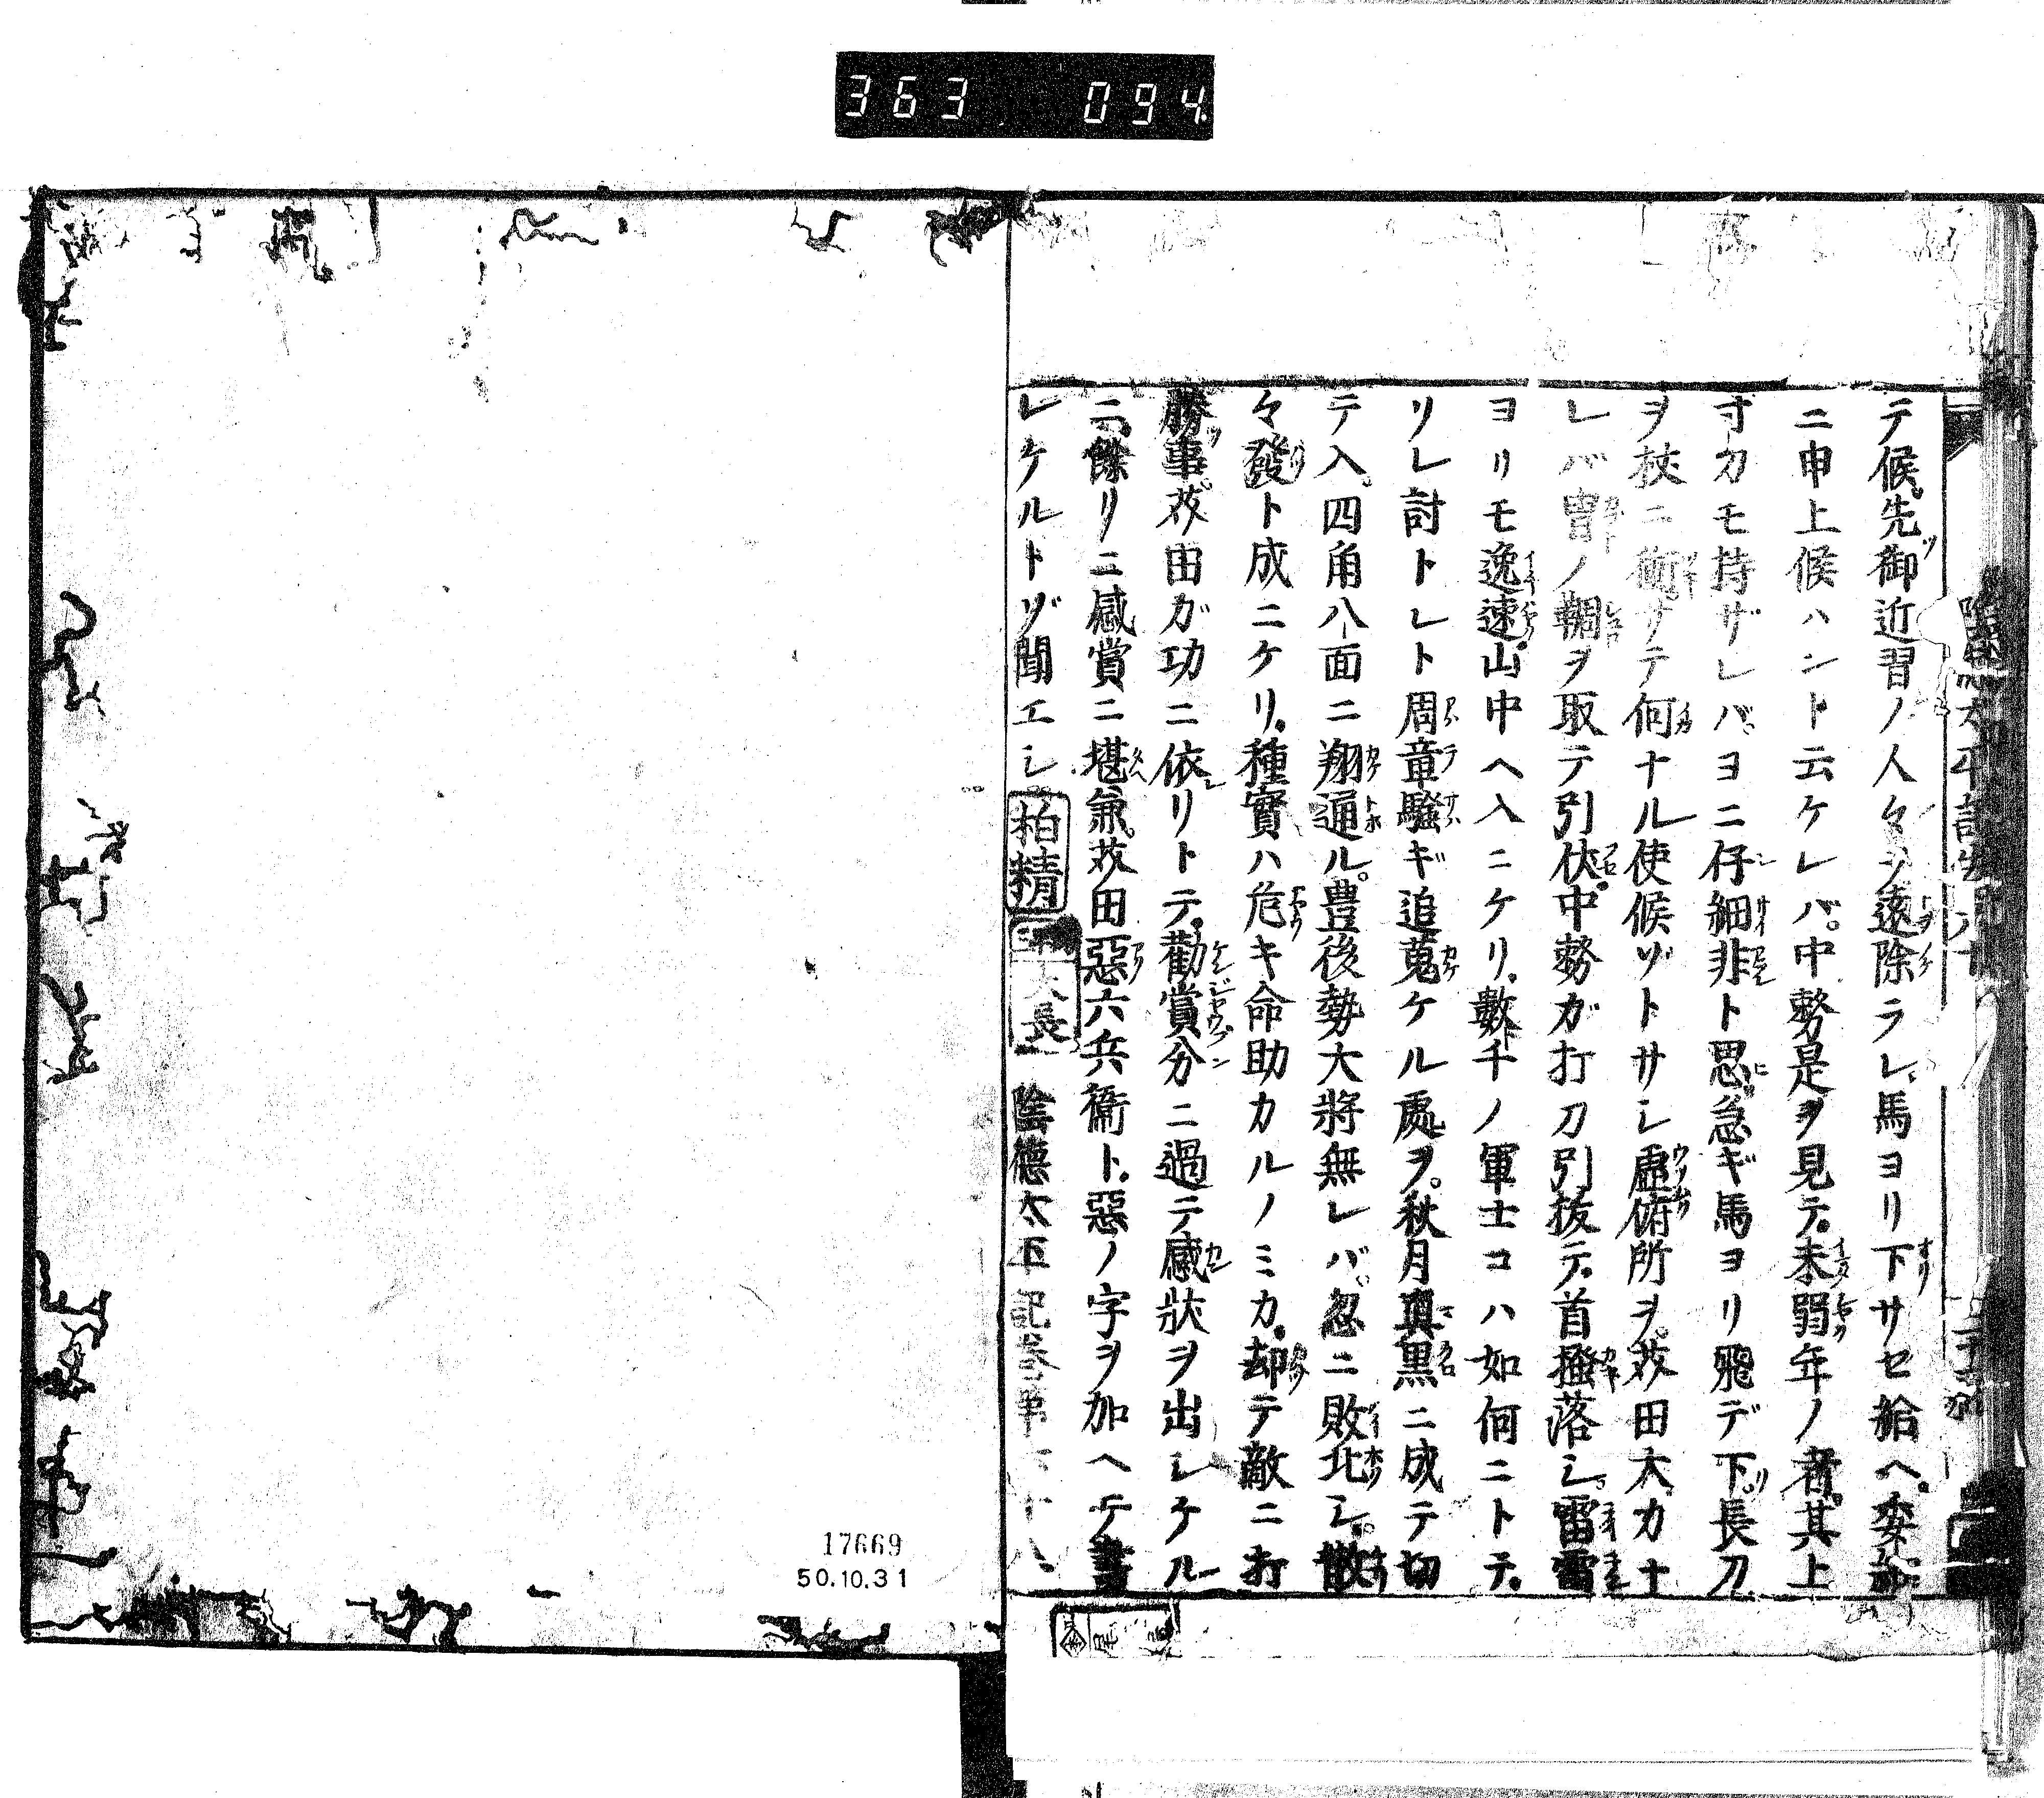 363 094
テ候。先ツ御近習ノ人々ヲ遠除ラレ、馬ヨリ下サセ給ヘ。委細
ニ申上候ハント云ケレバ。中務是ヲ見テ。未弱年ノ者。其上
寸カモ持ザレバ、ヨニ仔細非ト思ヒ。急ギ馬ヨリ飛デ下リ。長刀
ヲ杖ニ衝。サテ何ナル使候ゾトサシ虚俯所ヲ。苅田大力ナ
レバ冑ノ鞠ヲ取テ引伏。中務ガ打刀引拔テ。首搔落シ。雷電
ヨリモ逸速。山中ヘ入ニケリ。數千ノ軍士コハ如何ニトテ。
リレ討トレト周章騷ギ追蒐ケル處ヲ。秋月真黒ニ成テ切
テ入。四角八面ニ翔通ル。豊後勢大將無レバ。忽ニ敗北シ。散
々發ト成ニケリ。種實ハ危キ命助カルノミカ。却テ敵ニ打
勝ツ事。苅田ガ功ニ依レリトテ。勸賞分ニ過テ感狀ヲ出シケル
ニ。餘リニ感賞ニ堪兼。苅田惡六兵衞ト。惡ノ字ヲ加ヘテ書
レケルトゾ聞エシ
陰德太平記巻第六十八
17669
50.10.31